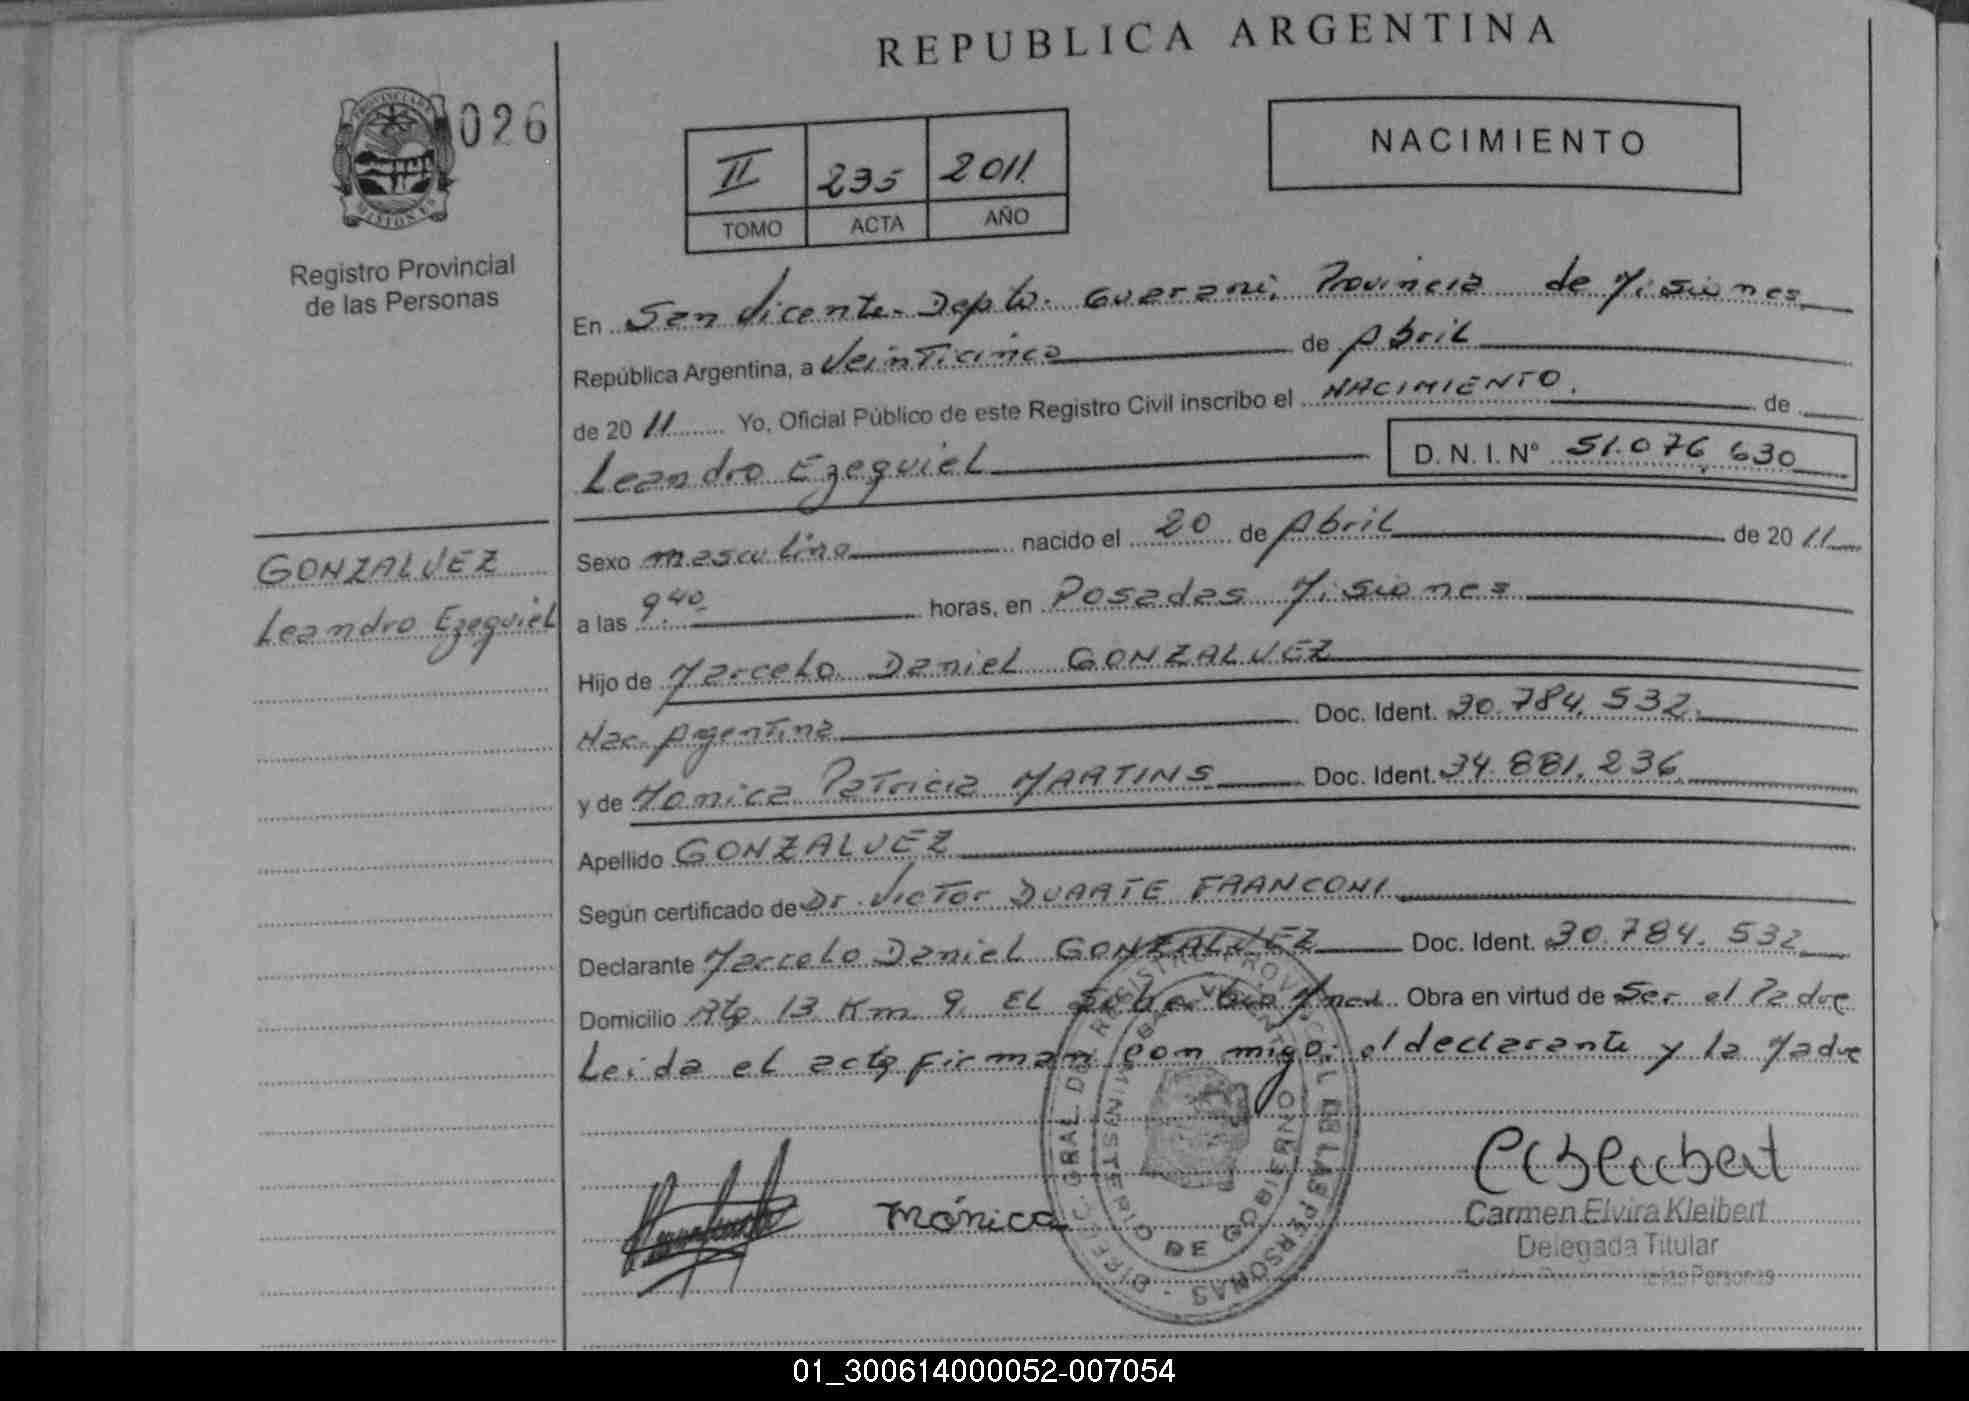 REPUBLICA ARGENTINA
PROVINCIA DE
MISIONES
026
Registro Provincial
de las Personas
II 235 2011
TOMO ACTA AÑO
NACIMIENTO
En San Vicente Depto. Guarani, Provincia de Misiones
República Argentina, a Veinticinco de Abril
de 2011 Yo, Oficial Público de este Registro Civil inscribo el NACIMIENTO. de
Leandro Ezequiel D. N. I. N° 51.076.630
GONZALVEZ
Leandro Ezequiel
Sexo masculino nacido el 20 de Abril de 2011
a las 9.40 horas, en Posadas Misiones
Hijo de Marcelo Daniel GONZALVEZ
Nac. Argentina Doc. Ident. 30.784.532.
y de Monica Patricia MARTINS Doc. Ident. 34.881.236
Apellido GONZALVEZ
Según certificado de Dr. Victor DUARTE FRANCONI
Declarante Marcelo Daniel GONZALVEZ Doc. Ident. 30.784.532
Domicilio Rta. 13 Km 9. EL Obra en virtud de Ser el Padre
Leida el acta firman con migo: el declarante y la Madre
DIREC. GRAL DE REGISTRO PROVINCIAL DE LAS PERSONAS
MINISTERIO DE GOBIERNO
Mónica
Carmen Elvira Kleibert
Delegada Titular
de las Personas
01_300614000052-007054